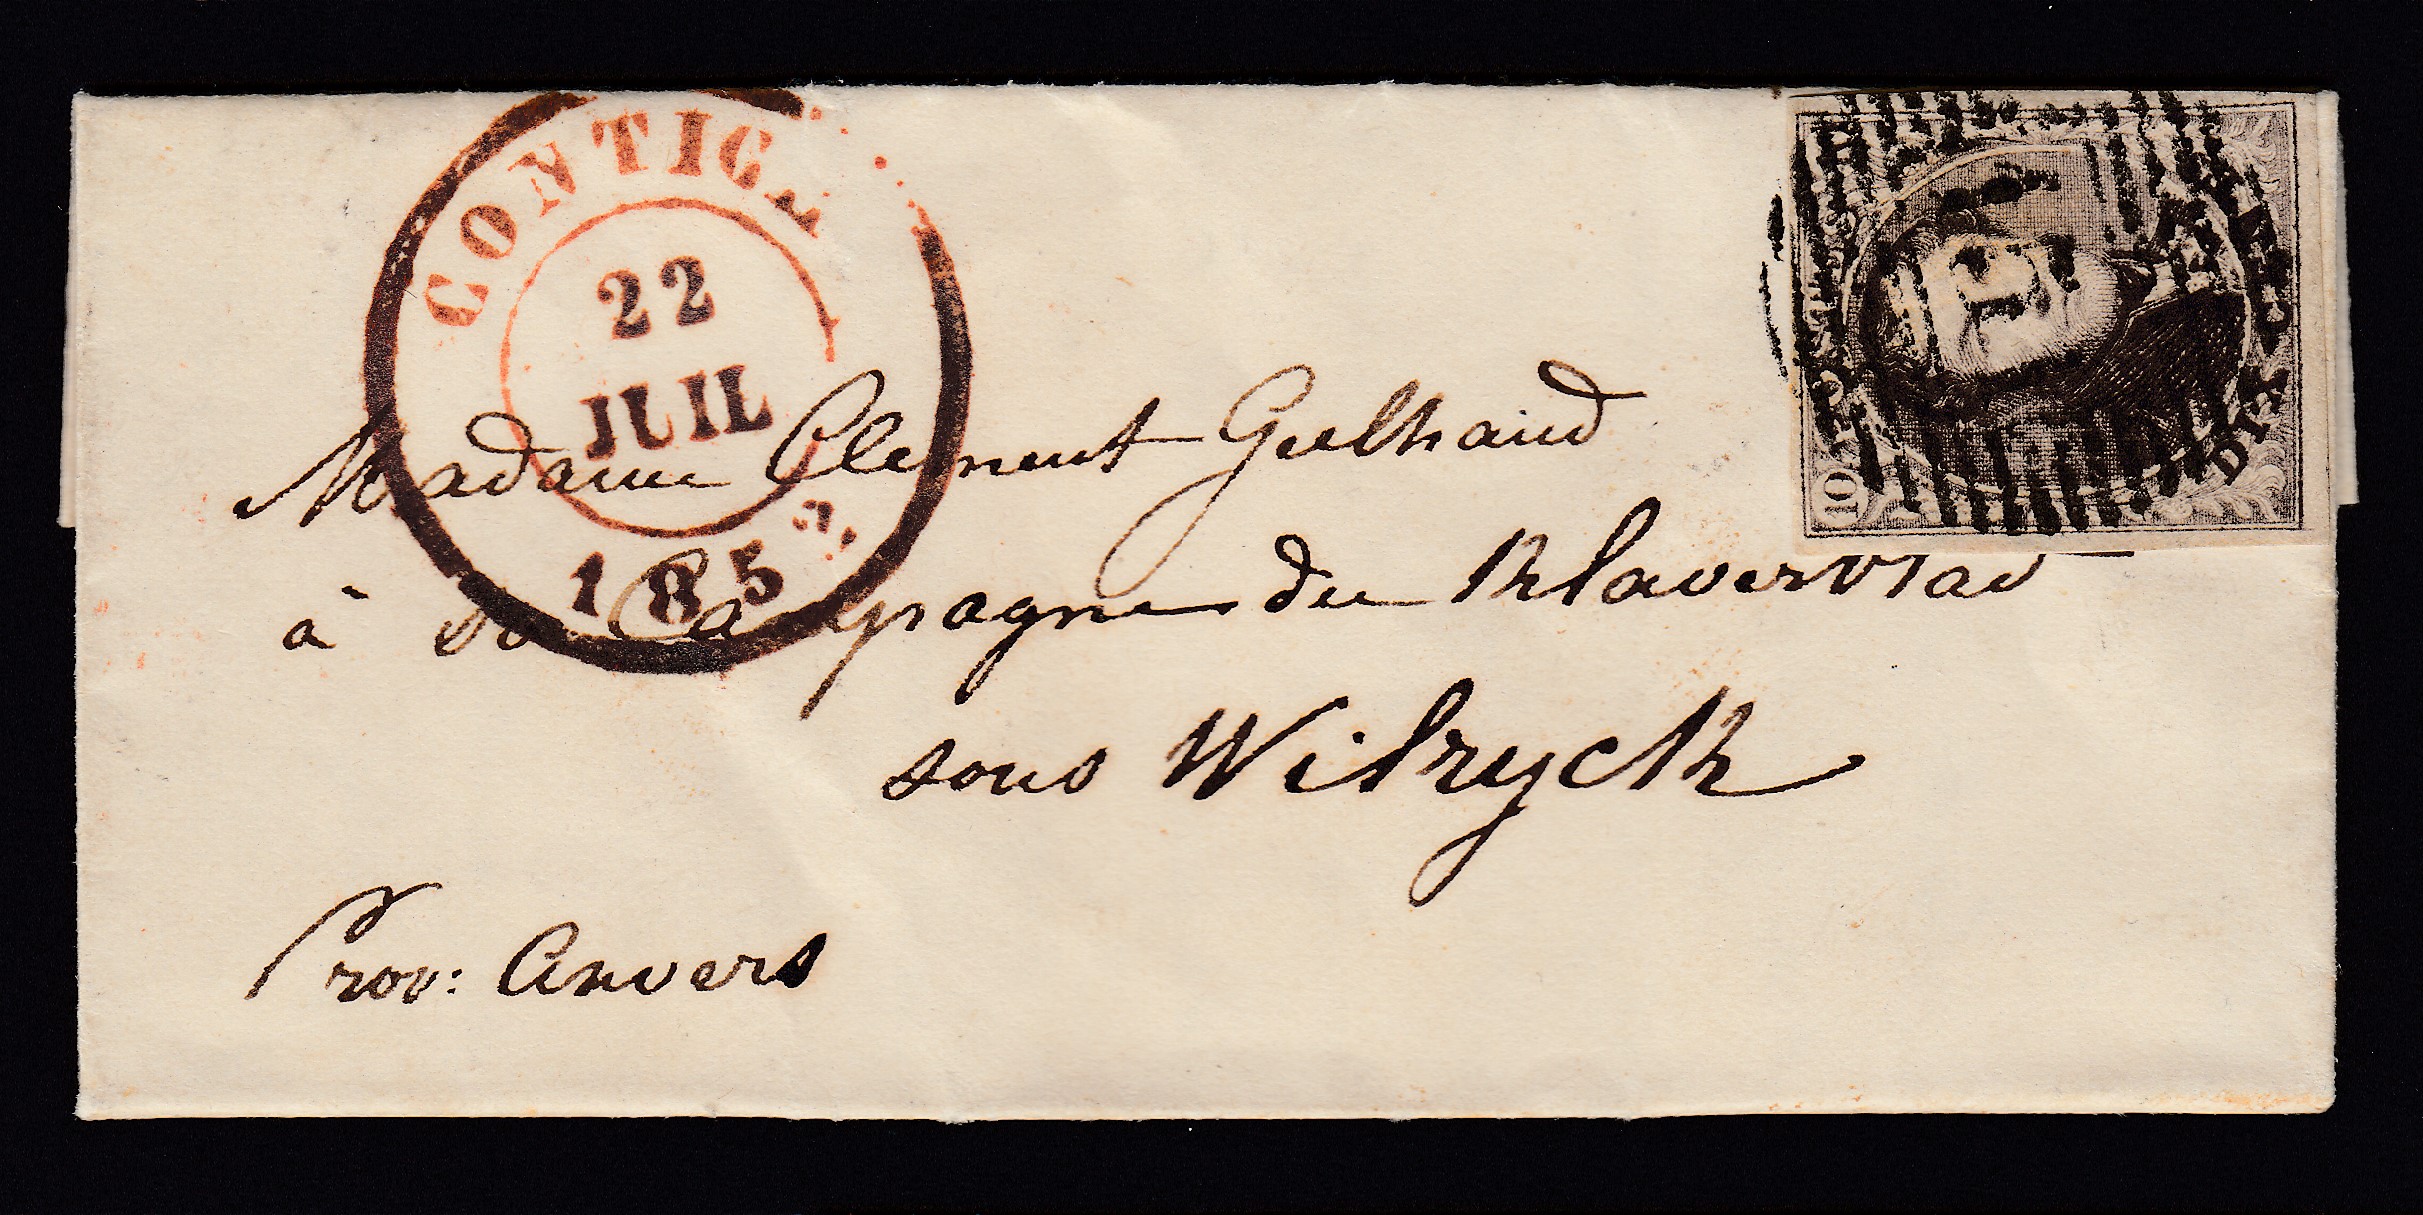 CONTICH
22
JUIL
185
POSTES
10
DIX CEN
Madame Clement Geelhand
à sa Campagne du Klaverblad
sous Wilryck
Prov: Anvers